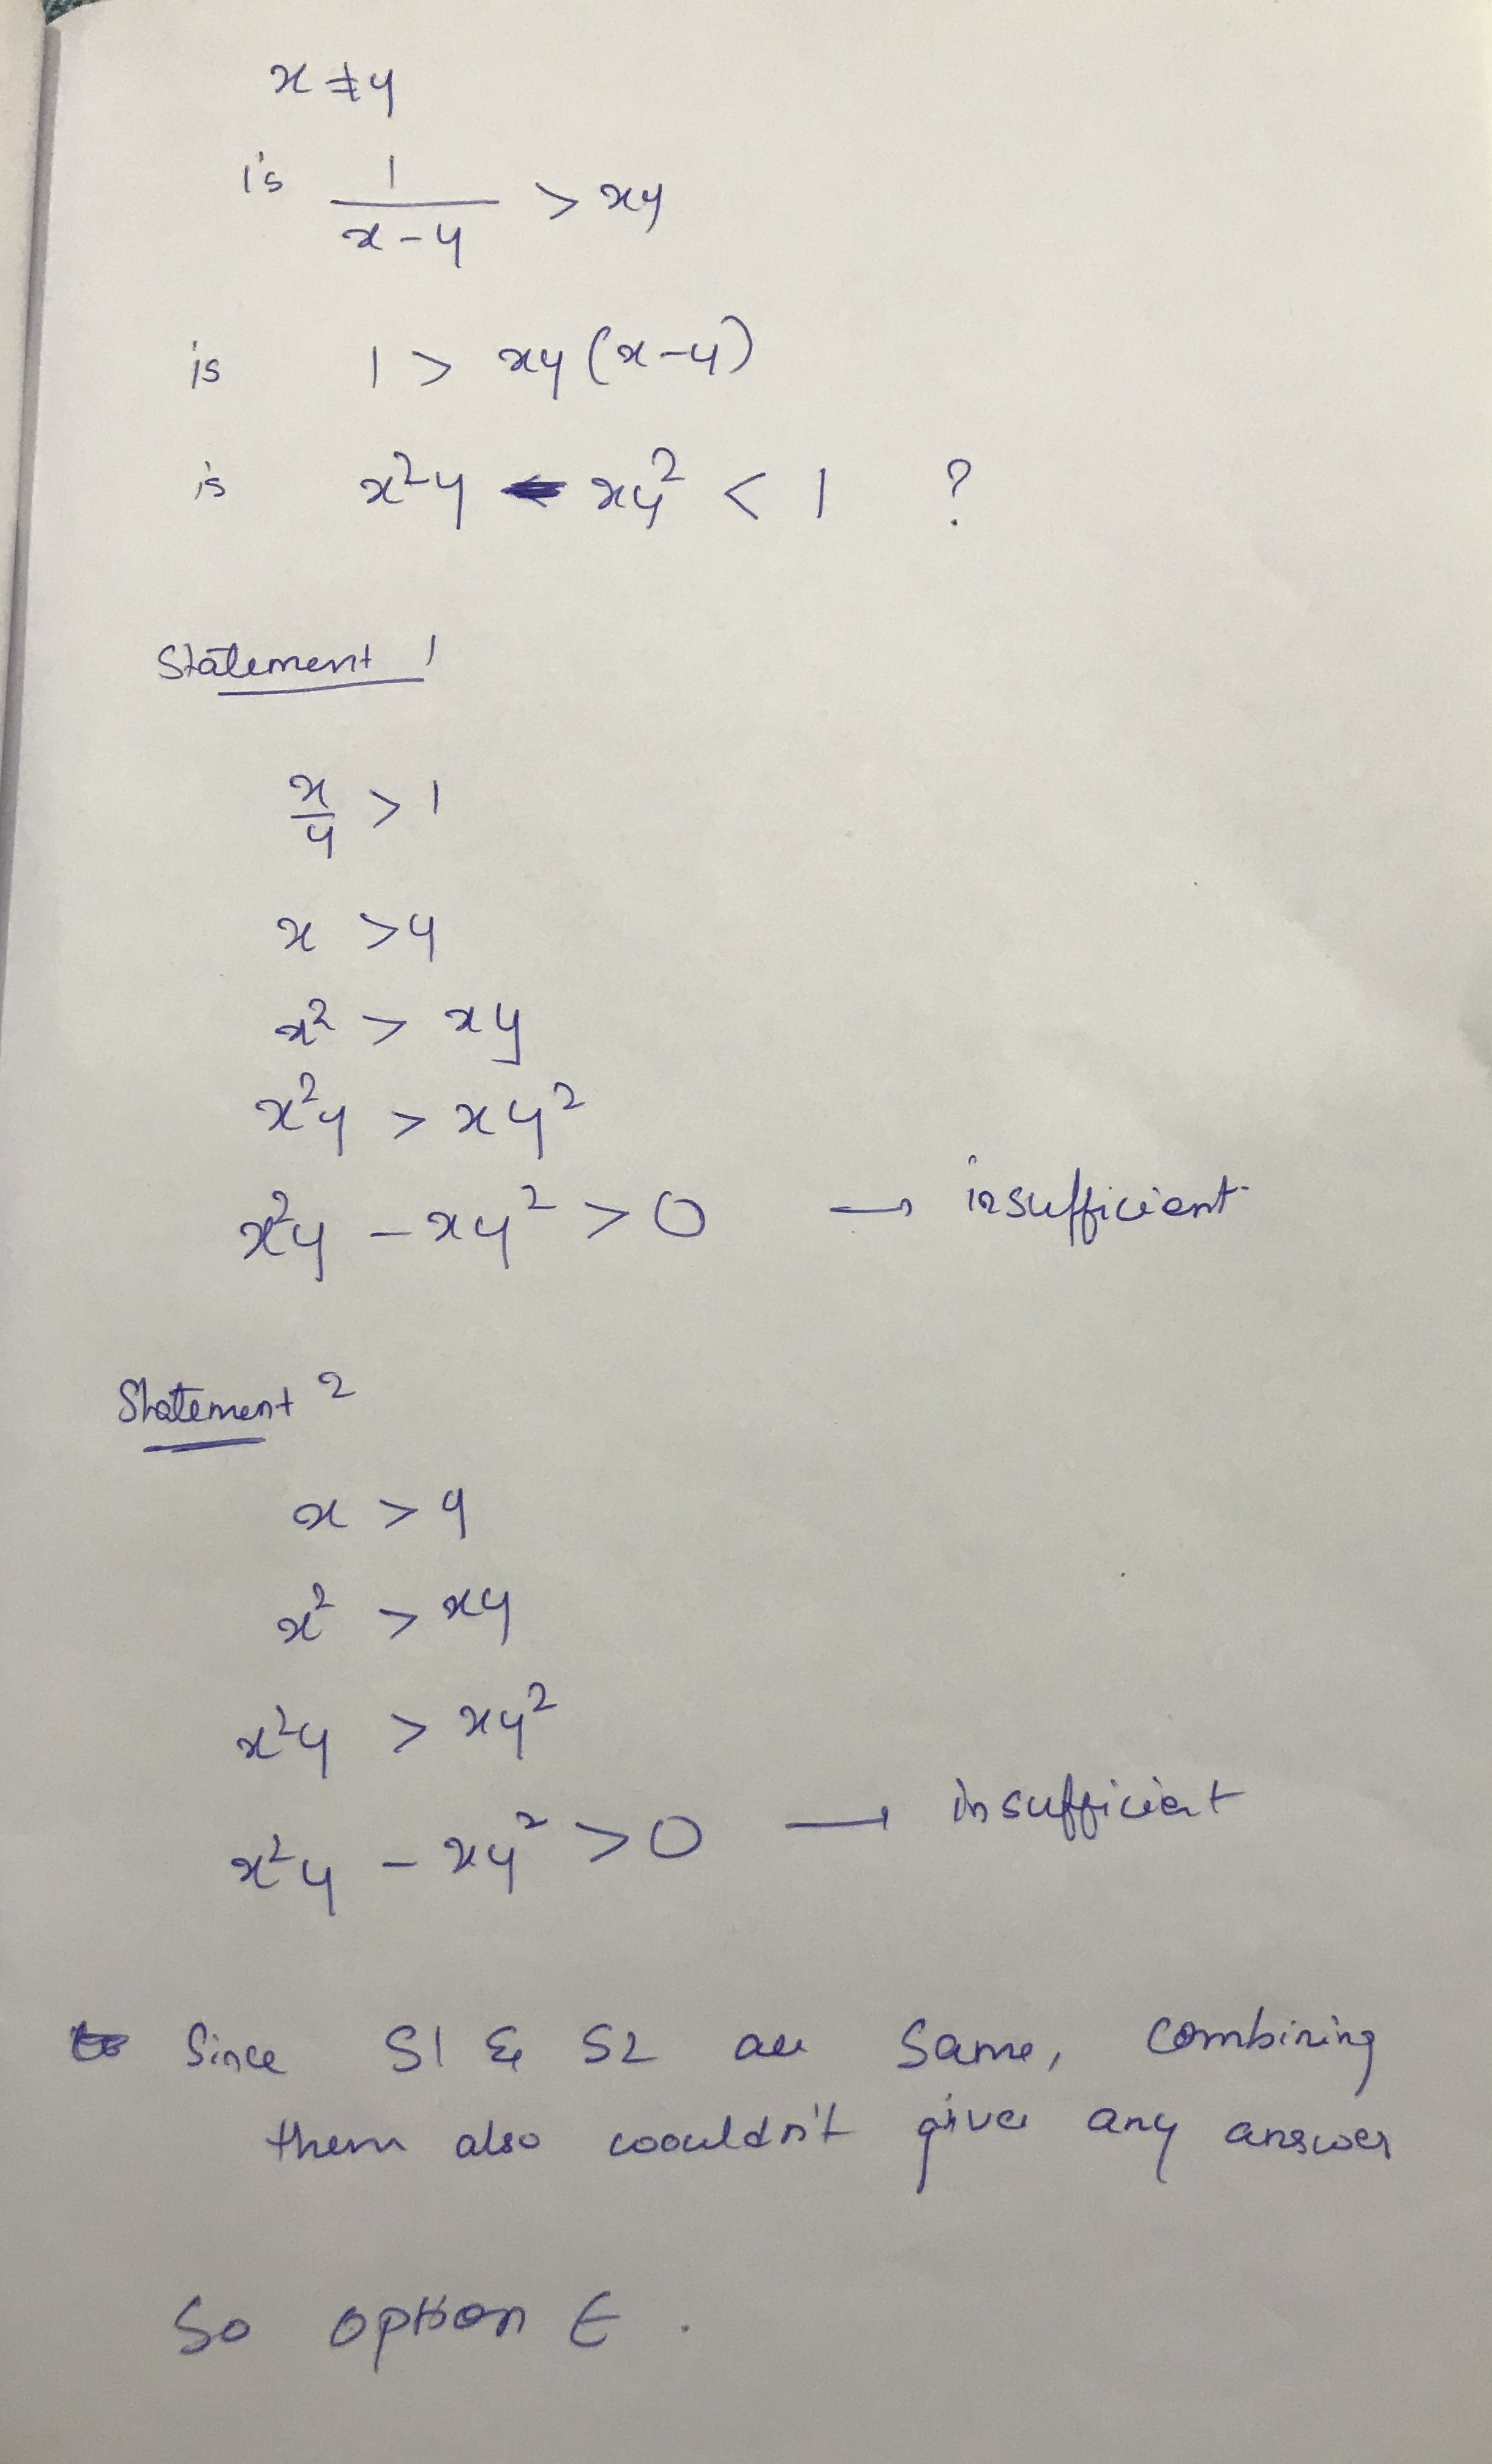 x ≠ y
is 1/(x-y) > xy
is 1 > xy(x-y)
is x²y - xy² < 1 ?
Statement 1
x/y > 1
x > y
x² > xy
x²y > xy²
x²y - xy² > 0 → insufficient
Statement 2
x > y
x² > xy
x²y > xy²
x²y - xy² > 0 → insufficient
Since S1 & S2 are same, combining
them also wouldn't give any answer
So option E.